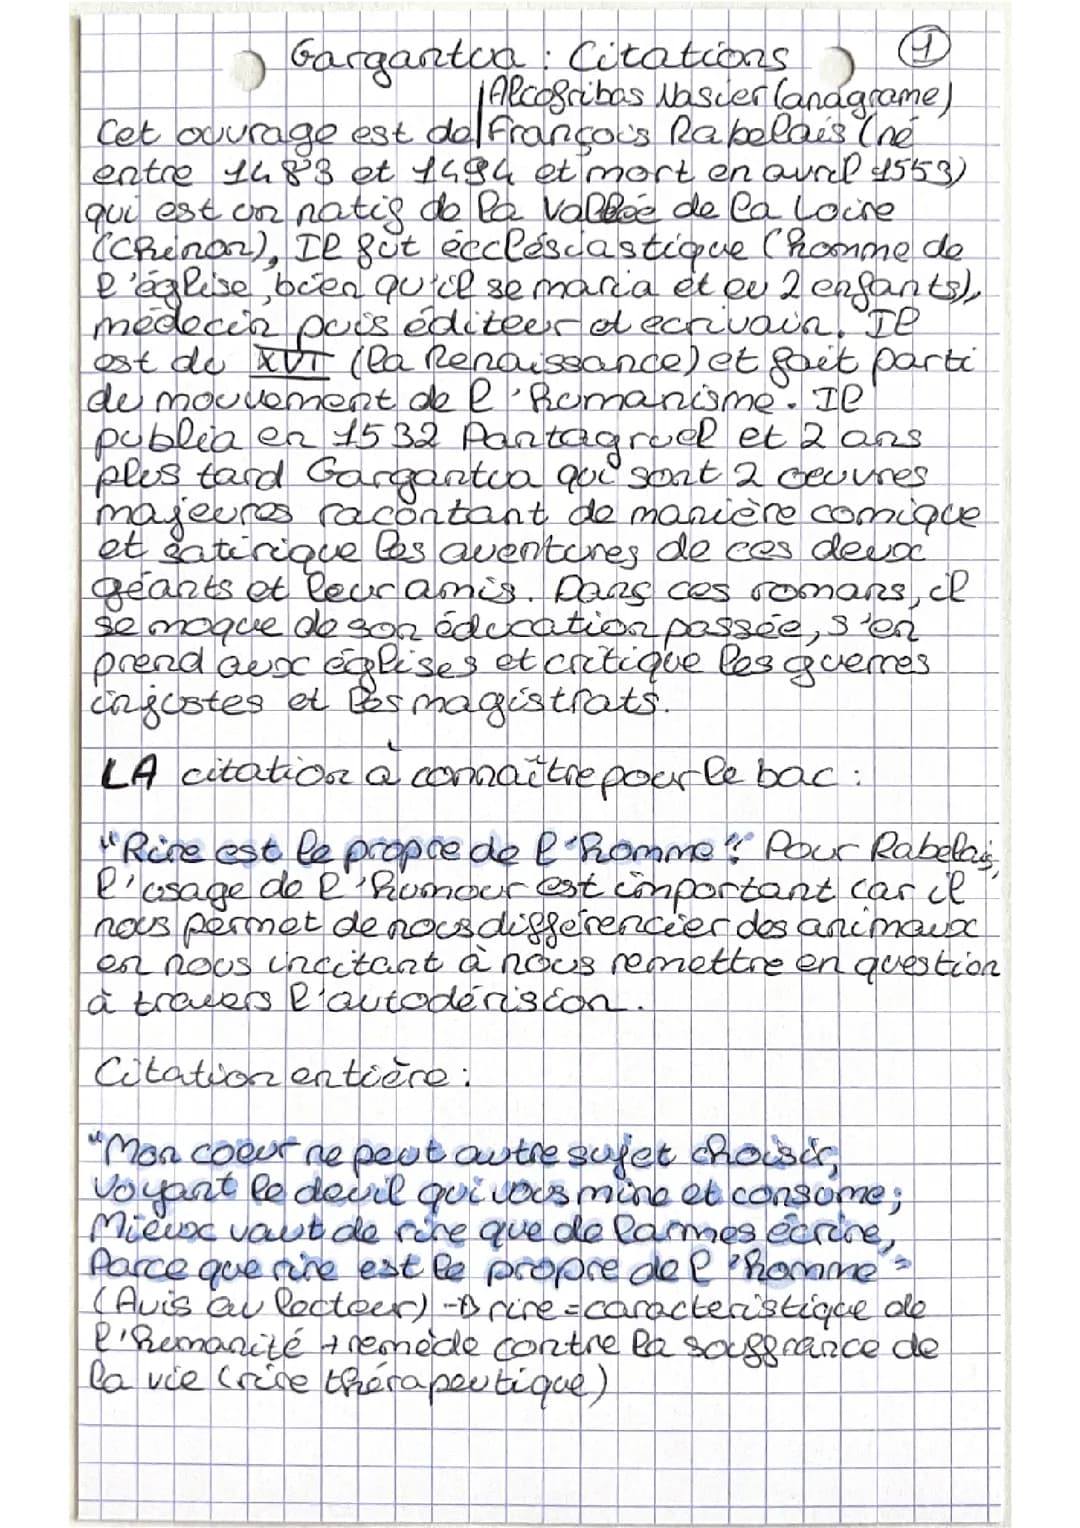 Gargantua : Citations
1
Alcofribas Nasier (anagrame)
Cet ouvrage est de François Rabelais (né
entre 1483 et 1494 et mort en avril 1553)
qui est un natif de la Vallée de la Loire
(Chinon), Il fut écclésiastique (homme de
l'église, bien qu'il se maria et eu 2 enfants),
médecin puis éditeur et ecrivain. Il
est du XVI (la Renaissance) et fait parti
du mouvement de l'Humanisme. Il
publia en 1532 Pantagruel et 2 ans
plus tard Gargantua qui sont 2 oeuvres
majeures racontant de manière comique
et satirique les aventures de ces deux
géants et leur amis. Dans ces romans, il
se moque de son éducation passée, s'en
prend aux églises et critique les guerres
injustes et les magistrats.
LA citation à connaître pour le bac :
"Rire est le propre de l'homme". Pour Rabelais,
l'usage de l'humour est important car il
nous permet de nous différencier des animaux
en nous incitant à nous remettre en question
à travers l'autodérision.
Citation entière :
"Mon coeur ne peut autre sujet choisir,
Voyant le deuil qui vous mine et consume;
Mieux vaut de rire que de larmes écrire,
Parce que rire est le propre de l'homme"
(Avis au lecteur) -> rire = caracteristique de
l'humanité + remède contre la souffrance de
la vie (rire thérapeutique)